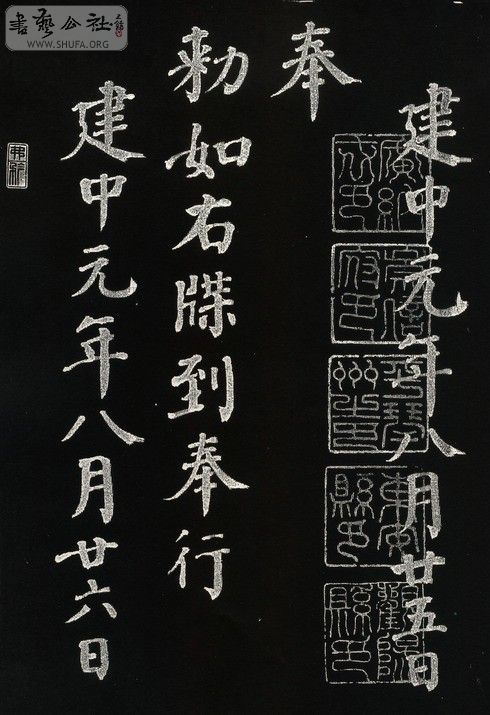 建中元年八月廿五日
奉
勅如右牒到奉行
建中元年八月廿六日
書藝公社
WWW.SHUFA.ORG